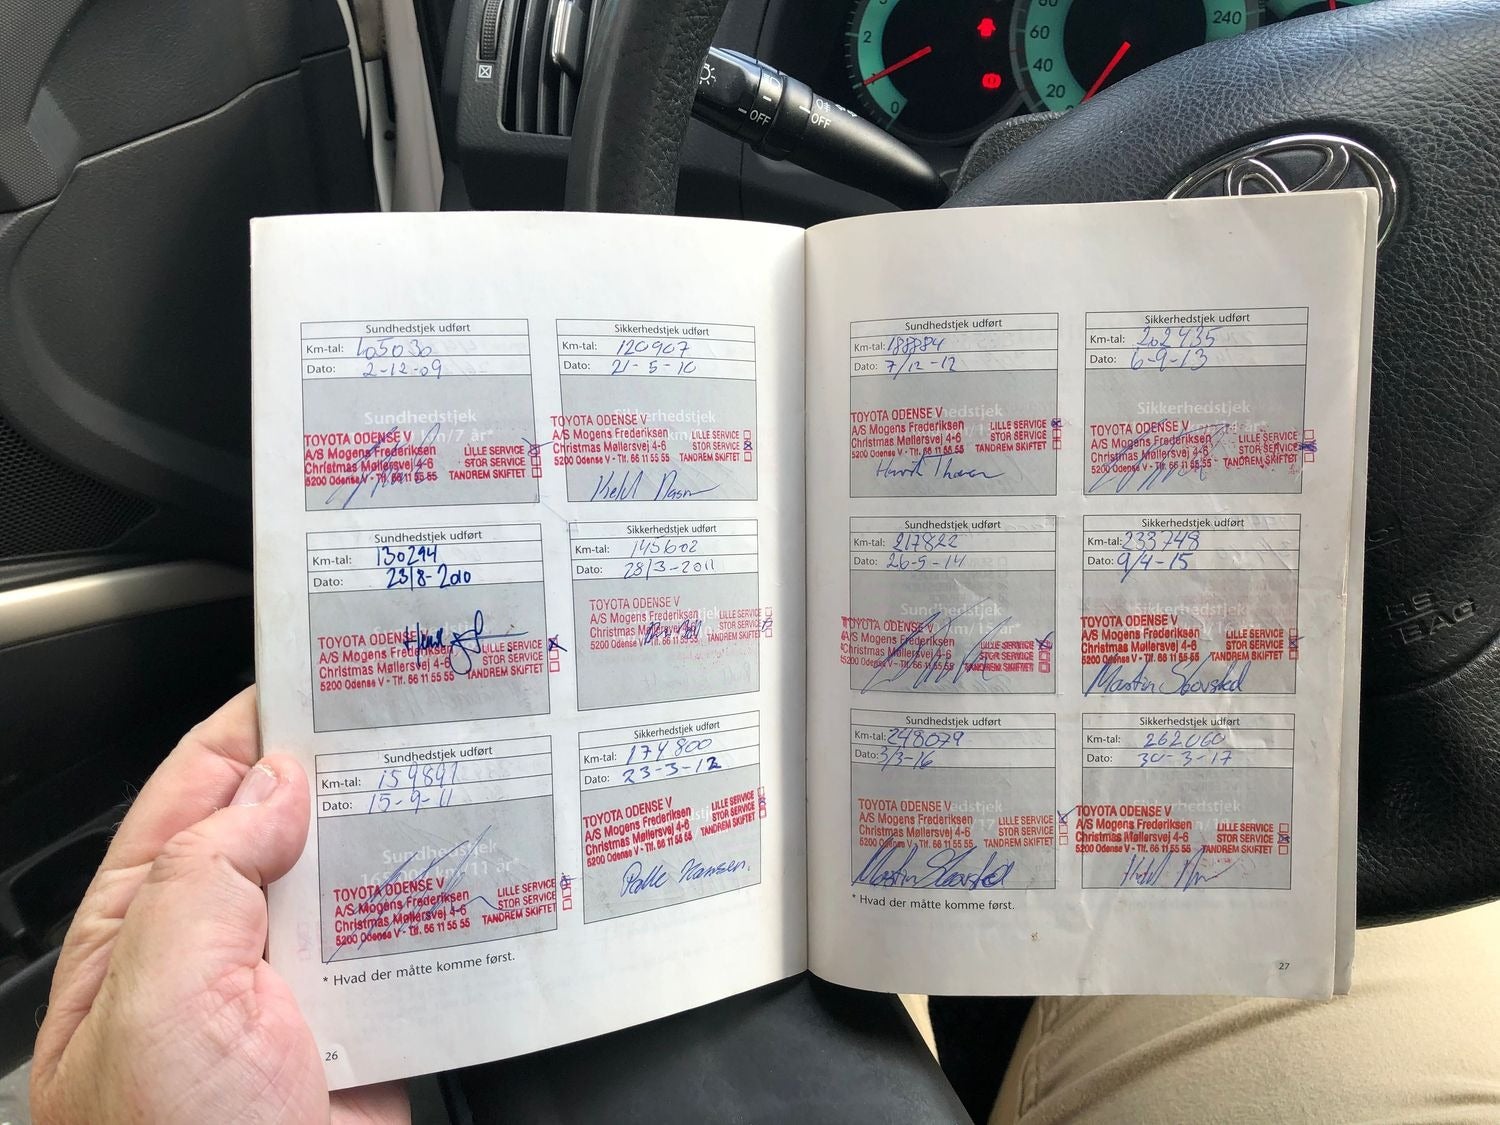 2
0
60
40
20
240
OFF
OFF
Sundhedstjek udført
Km-tal: 105030
Dato: 2-12-09
Sundhedstjek
km/7 år*
TOYOTA ODENSE V
A/S Mogens Frederiksen
Christmas Møllersvej 4-6
5200 Odense V - Tlf. 66 11 55 55
LILLE SERVICE
STOR SERVICE
TANDREM SKIFTET
Sikkerhedstjek udført
Km-tal: 120907
Dato: 21-5-10
Sikkerhedstjek
TOYOTA ODENSE V
A/S Mogens Frederiksen
Christmas Møllersvej 4-6
5200 Odense V - Tlf. 66 11 55 55
LILLE SERVICE
STOR SERVICE
TANDREM SKIFTET
Sundhedstjek udført
Km-tal: 130294
Dato: 23/8-2010
TOYOTA ODENSE V
A/S Mogens Frederiksen
Christmas Møllersvej 4-6
5200 Odense V - Tlf. 66 11 55 55
LILLE SERVICE
STOR SERVICE
TANDREM SKIFTET
Sikkerhedstjek udført
Km-tal: 145602
Dato: 28/3-2011
TOYOTA ODENSE V
A/S Mogens Frederiksen
Christmas Møllersvej 4-6
5200 Odense V - Tlf. 66 11 55 55
LILLE SERVICE
STOR SERVICE
TANDREM SKIFTET
Sundhedstjek udført
Km-tal: 159891
Dato: 15-9-11
Sundhedstjek
165.000 km/11 år*
TOYOTA ODENSE V
A/S Mogens Frederiksen
Christmas Møllersvej 4-6
5200 Odense V - Tlf. 66 11 55 55
LILLE SERVICE
STOR SERVICE
TANDREM SKIFTET
Sikkerhedstjek udført
Km-tal: 174800
Dato: 23-3-12
TOYOTA ODENSE V
A/S Mogens Frederiksen
Christmas Møllersvej 4-6
5200 Odense V - Tlf. 66 11 55 55
LILLE SERVICE
STOR SERVICE
TANDREM SKIFTET
Palle Hansen.
* Hvad der måtte komme først.
26
Sundhedstjek udført
Km-tal: 188884
Dato: 7/12-12
TOYOTA ODENSE V
A/S Mogens Frederiksen
Christmas Møllersvej 4-6
5200 Odense V - Tlf. 66 11 55 55
LILLE SERVICE
STOR SERVICE
TANDREM SKIFTET
Sikkerhedstjek udført
Km-tal: 202435
Dato: 6-9-13
Sikkerhedstjek
TOYOTA ODENSE V
A/S Mogens Frederiksen
Christmas Møllersvej 4-6
5200 Odense V - Tlf. 66 11 55 55
LILLE SERVICE
STOR SERVICE
TANDREM SKIFTET
Sundhedstjek udført
Km-tal: 217822
Dato: 26-5-14
Sundhedstjek
km/15 år*
TOYOTA ODENSE V
A/S Mogens Frederiksen
Christmas Møllersvej 4-6
5200 Odense V - Tlf. 66 11 55 55
LILLE SERVICE
STOR SERVICE
TANDREM SKIFTET
Sikkerhedstjek udført
Km-tal: 233748
Dato: 9/4-15
TOYOTA ODENSE V
A/S Mogens Frederiksen
Christmas Møllersvej 4-6
5200 Odense V - Tlf. 66 11 55 55
LILLE SERVICE
STOR SERVICE
TANDREM SKIFTET
Martin Skovsted
Sundhedstjek udført
Km-tal: 248079
Dato: 3/3-16
TOYOTA ODENSE V
A/S Mogens Frederiksen
Christmas Møllersvej 4-6
5200 Odense V - Tlf. 66 11 55 55
LILLE SERVICE
STOR SERVICE
TANDREM SKIFTET
Martin Skovsted
Sikkerhedstjek udført
Km-tal: 262060
Dato: 30-3-17
TOYOTA ODENSE V
A/S Mogens Frederiksen
Christmas Møllersvej 4-6
5200 Odense V - Tlf. 66 11 55 55
LILLE SERVICE
STOR SERVICE
TANDREM SKIFTET
* Hvad der måtte komme først.
27